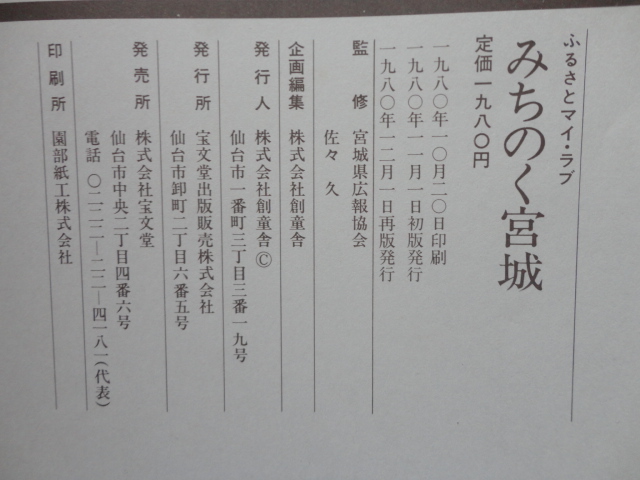 ふるさとマイ・ラブ
みちのく宮城
定価一九八〇円
一九八〇年一〇月二〇日印刷
一九八〇年一一月一日初版発行
一九八〇年一二月一日再版発行
監修 宮城県広報協会
佐々久
企画編集 株式会社創童舎
発行人 株式会社創童舎©
仙台市一番町三丁目三番一九号
発行所 宝文堂出版販売株式会社
仙台市卸町二丁目六番五号
発売所 株式会社宝文堂
仙台市中央二丁目四番六号
電話 〇二二二―二二―四一八一(代表)
印刷所 園部紙工株式会社